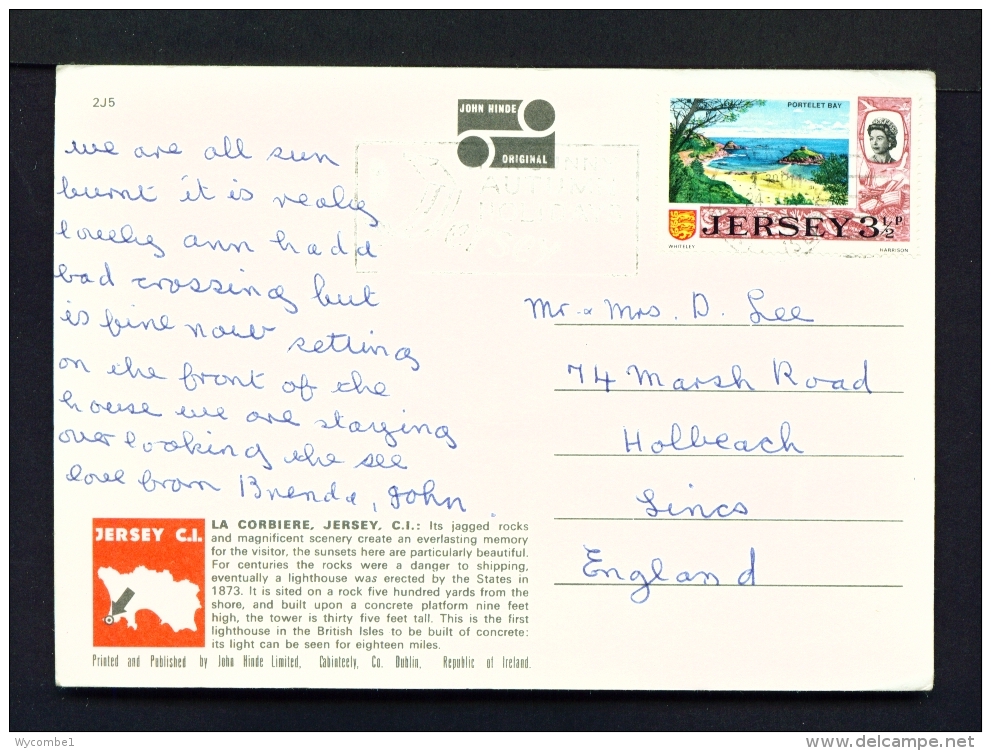 2J5
JOHN HINDE
ORIGINAL
PORTELET BAY
JERSEY 3½P
WHITELEY
HARRISON
we are all sun
burnt it is realy
lovely ann had a
bad crossing but
is fine now setting
on the front of the
house we are staying
over looking the see
love from Brenda, John.
Mr. & Mrs. D. Lee
74 Marsh Road
Holbeach
Lincs
England
JERSEY C.I.
LA CORBIERE, JERSEY, C.I.: Its jagged rocks
and magnificent scenery create an everlasting memory
for the visitor, the sunsets here are particularly beautiful.
For centuries the rocks were a danger to shipping,
eventually a lighthouse was erected by the States in
1873. It is sited on a rock five hundred yards from the
shore, and built upon a concrete platform nine feet
high, the tower is thirty five feet tall. This is the first
lighthouse in the British Isles to be built of concrete:
its light can be seen for eighteen miles.
Printed and Published by John Hinde Limited, Cabinteely, Co. Dublin, Republic of Ireland.
Wycombe1
www.delcampe.net